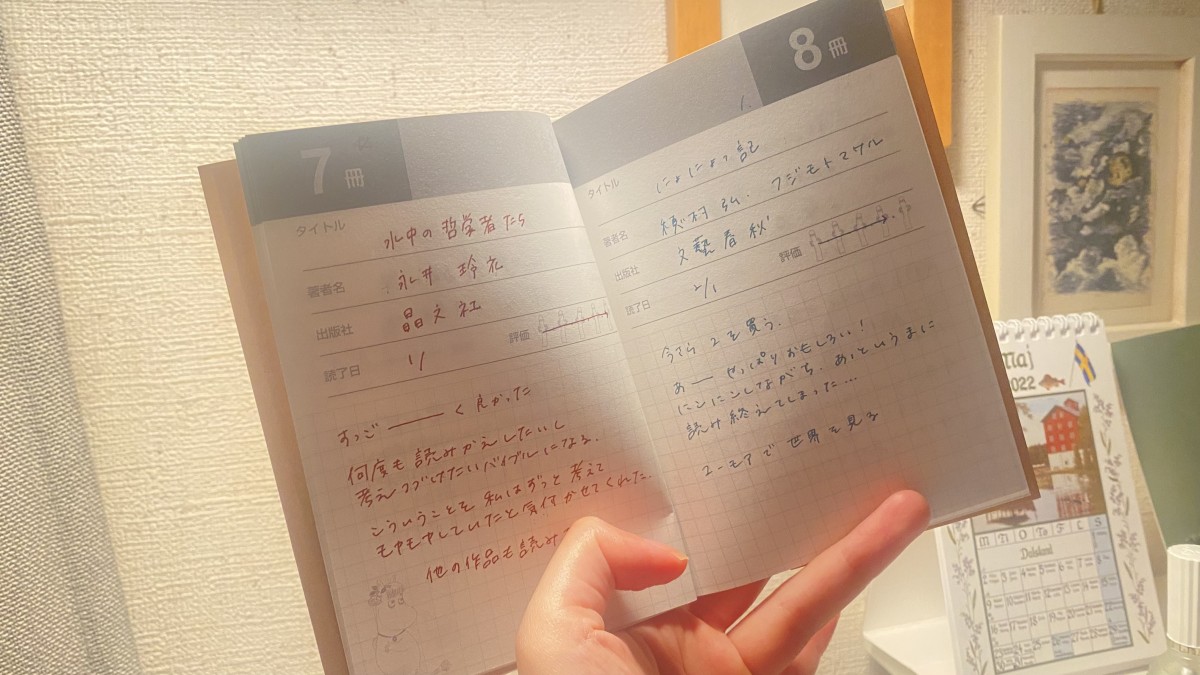 7冊
タイトル 水中の哲学者たち
著者名 永井 玲衣
出版社 晶文社
評価
読了日 1/
すっごーーーく良かった
何度も読みかえしたいし
考えつづけたいバイブルになる。
こういうことを私はずっと考えて
モヤモヤしていたと気付かせてくれた。
他の作品も読み
8冊
タイトル にょにょっ記
著者名 穂村 弘. フジモトマサル
出版社 文藝春秋
評価
読了日 2/1
今さら 2を買う.
あー やっぱりおもしろい!
にンにンしながら、あっというまに
読み終えてしまった…
ユーモアで世界を見る
Maj
2022
M Ti O To F L S
Dalsland